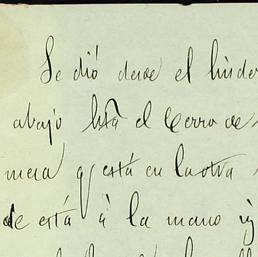 Se dió desde el linde
abajo hta el Cerro de
mera q está en la otra
de está á la mano iz